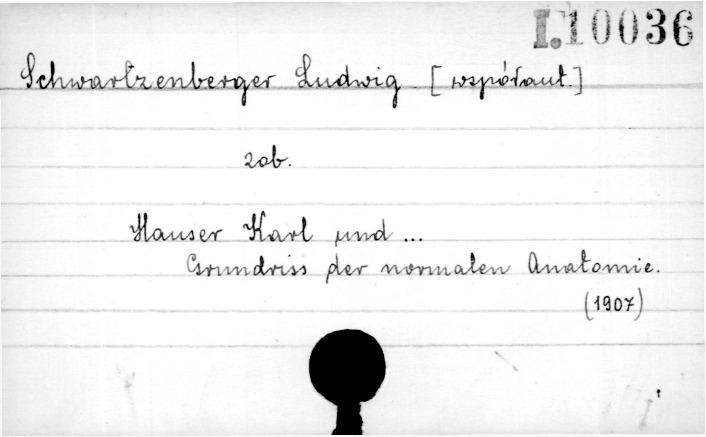 I.10036
Schwartzenberger Ludwig [współaut.]
zob.
Hauser Karl und...
Grundriss der normalen Anatomie.
(1907)